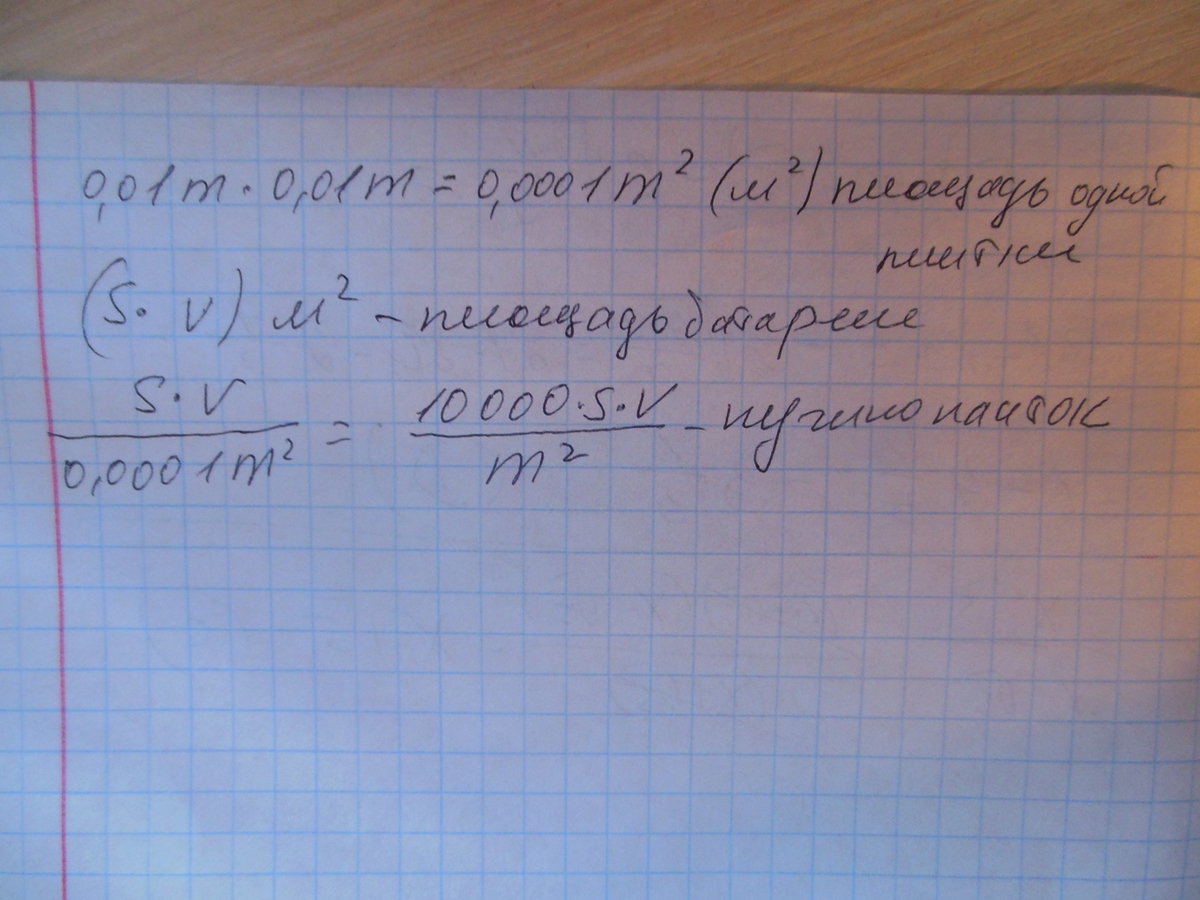 0,01m · 0,01m = 0,0001m² (м²) площадь одной
плитки
(S · V) м² - площадь батареи
S · V / 0,0001m² = 10000 · S · V / m² - нужно плиток